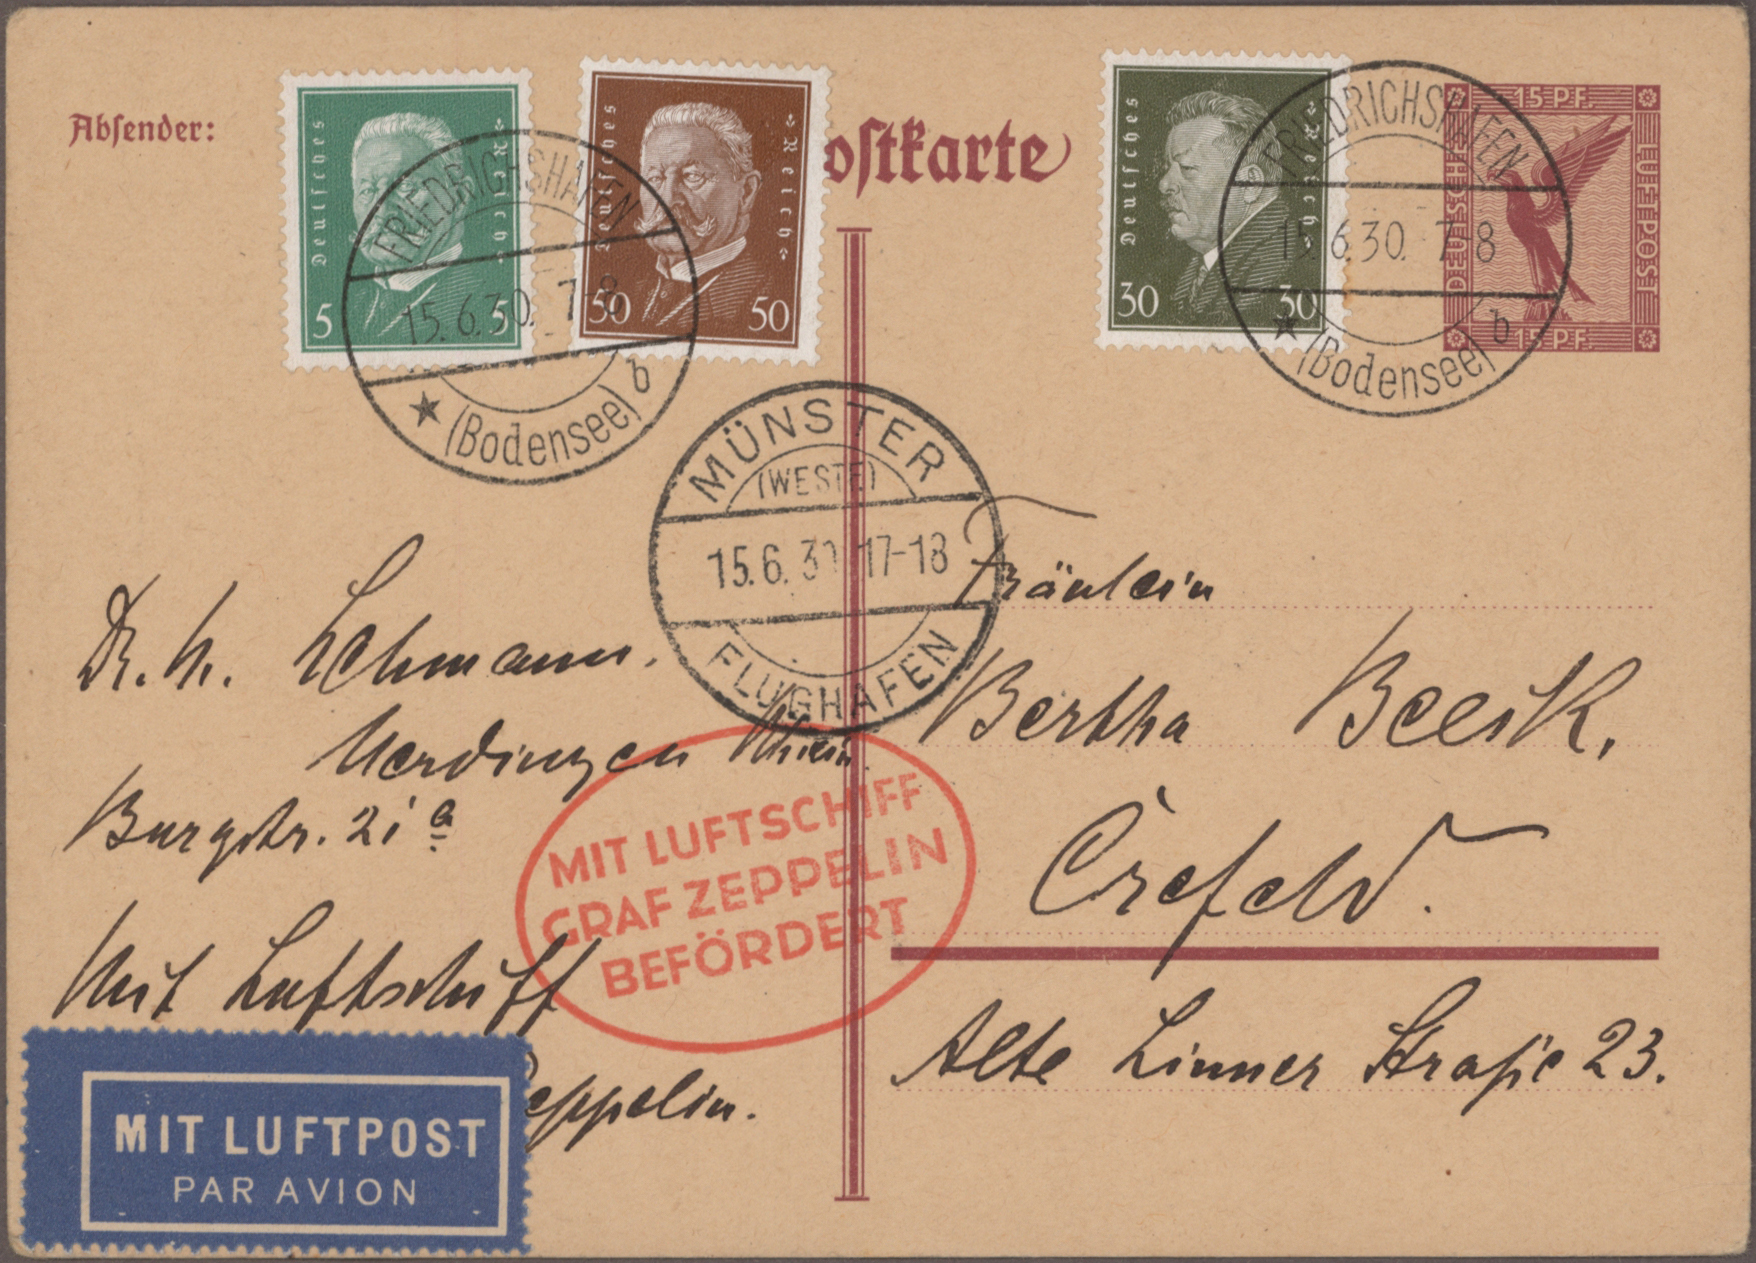 Absender:
Deutsches Reich
5 5
Deutsches Reich
50 50
ostkarte
Deutsches Reich
30 30
15 PF.
DEUTSCHE LUFTPOST
15 PF.
FRIEDRICHSHAFEN
15.6.30. 7-8
(Bodensee) b
FRIEDRICHSHAFEN
15.6.30. 7-8
(Bodensee) b
MÜNSTER
(WESTF)
15.6.30 17-18
FLUGHAFEN
Dr. H. Lehmann.
Uerdingen Rhein
Burgstr. 21 a
Mit Luftschiff
eppelin.
MIT LUFTSCHIFF
GRAF ZEPPELIN
BEFÖRDERT
MIT LUFTPOST
PAR AVION
Fräulein
Bertha
Crefeld.
Alte Linner Straße 23.